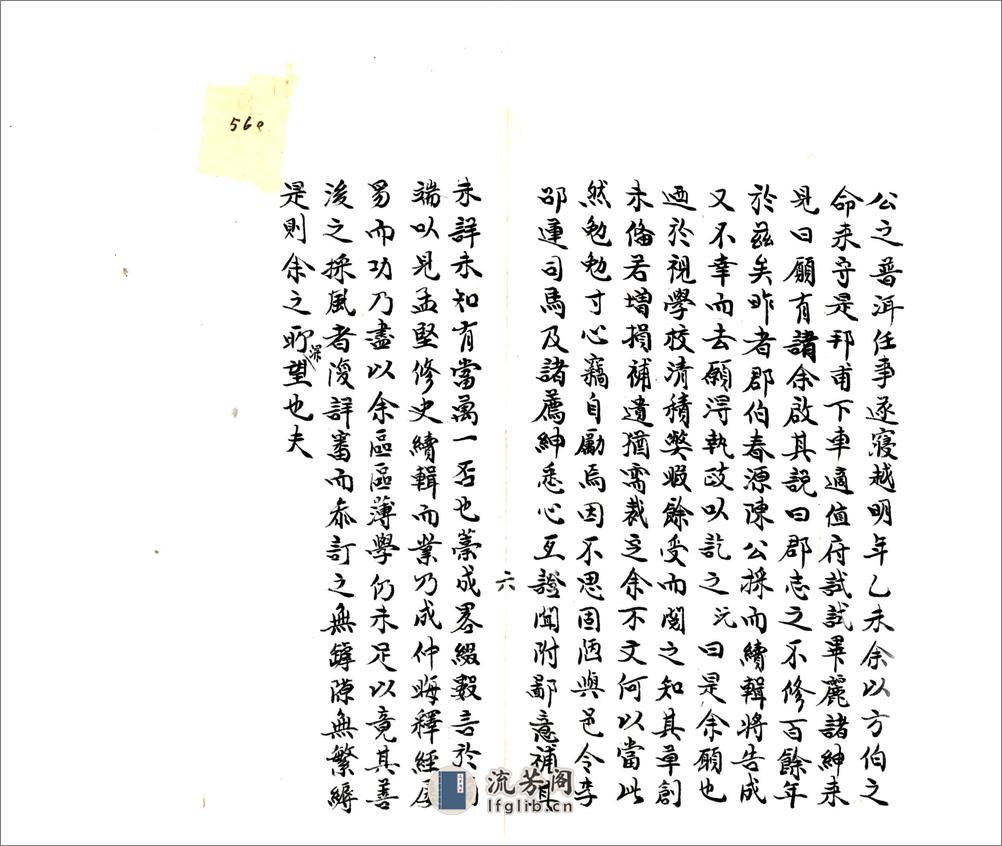 公之普洱任事遂寢越明年乙未余以方伯之
命来守是邦甫下車適值府試試畢麗諸紳来
見曰願有請余啟其説曰郡志之不修百餘年
於茲矣昨者郡伯春源陳公採而續輯將告成
又不幸而去願淂執政以訖之沅曰是余願也
迺於視學校清積獘暇餘受而閱之知其草創
未備若增損補遺猶需裁定余不文何以當此
然勉勉寸心竊自勵焉因不思固陋與邑令李
邵運司馬及諸薦紳悉心互證聞附鄙意補其
六
未詳未知有當萬一否也藁成畧綴數言於
端以見孟堅修史續輯而業乃成仲晦釋經
易而功乃盡以余區區薄學仍未足以竟其善
後之採風者復詳審而叅訂之無罅隙無繁縟
是則余之所深望也夫
560
流芳阁
lfglib.cn